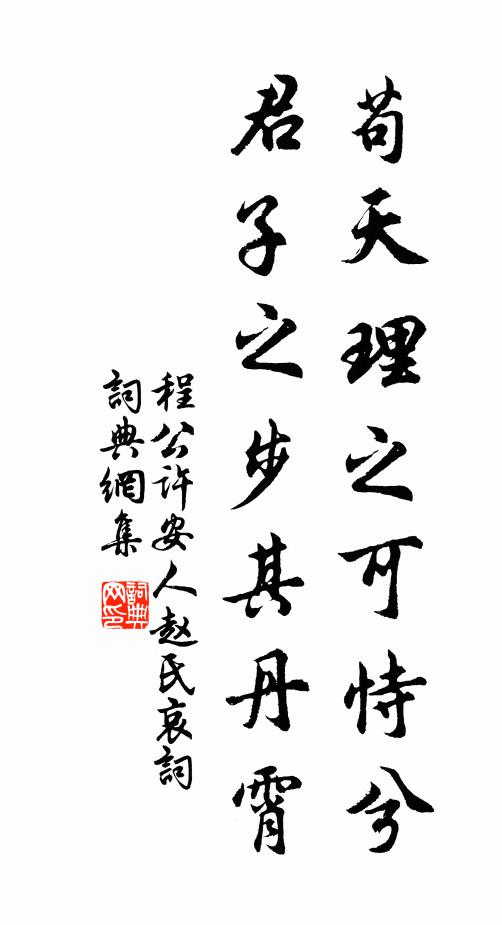 苟天理之可恃兮
君子之步其丹霄
程公许安人赵氏哀詞
詞典網集
詞典网印